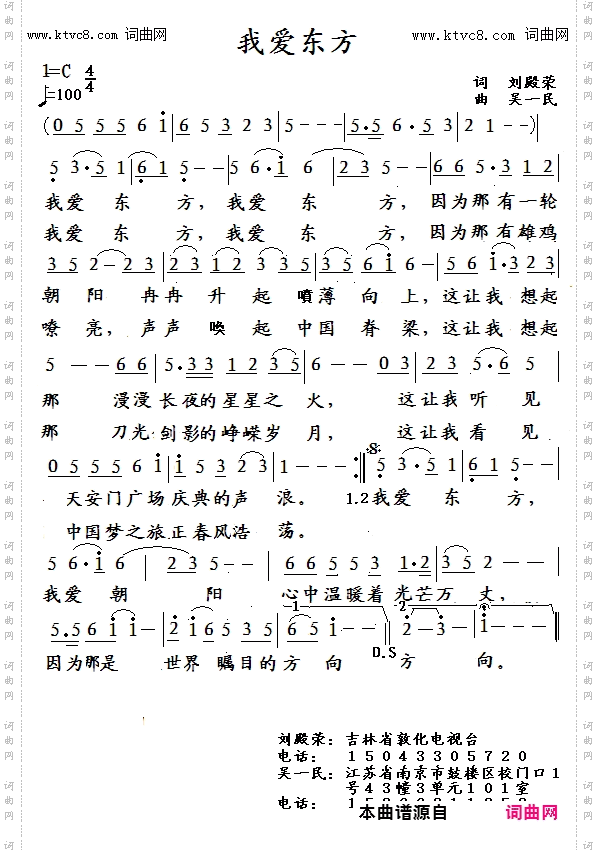 www.ktvc8.com 词曲网
我爱东方
www.ktvc8.com 词曲网
1=C 4/4
♩=100
词 刘殿荣
曲 吴一民
(0 5 5 5 6 i | 6 5 3 2 3 | 5 - - - | 5·5 6 5·3 | 2 1 - - )
5 3·5 1 | 6 1 5 - - | 5 6·i 6 | 2 3 5 - - | 6 6 5·3 1 2 |
我爱 东 方，我爱 东 方，因为那有一轮
我爱 东 方，我爱 东 方，因为那有雄鸡
3 5 2 - 2 3 | 1 2 3 1 2 3 | 5 - - 3 5 | 3 5 6 i 6 - | 5 6 i·3 2 3 |
朝阳 冉冉 升 起 喷薄 向 上，这让我 想起
嘹亮，声声 唤 起 中国 脊 梁，这让我 想起
5 - - 6 6 | 5·3 3 2 1 2 3 5 | 6 - - 0 3 | 2 3 5·6 5 |
那 漫漫长夜的星星之 火， 这让我听 见
那 刀光剑影的峥嵘岁 月， 这让我看 见
0 5 5 5 6 i | i 5 3 2 3 | 1 - - - :‖ 5 3·5 1 | 6 1 5 - - |
天安门广场 庆典的声 浪。 1.2我爱 东 方，
中国梦之旅正春风浩 荡。
5 6·i 6 | 2 3 5 - - | 6 6 5 5 3 | 1·2 3 5 3 | 2 - - - |
我爱 朝 阳 心中温暖着 光芒万 丈，
1 2
5·5 6 i i - | 2 i 6 5 3 5 | 6 5 i - - :‖ 2 - 3 - | i - - - ‖
D.S
因为那是 世界 瞩目的方 向 方 向。
刘殿荣：吉林省敦化电视台
电话： 15043305720
吴一民：江苏省南京市鼓楼区校门口1
号43幢3单元101室
电话：
本曲谱源自 词曲网
词曲网
词曲网
词曲网
词曲网
词曲网
词曲网
词曲网
词曲网
词曲网
词曲网
词曲网
词曲网